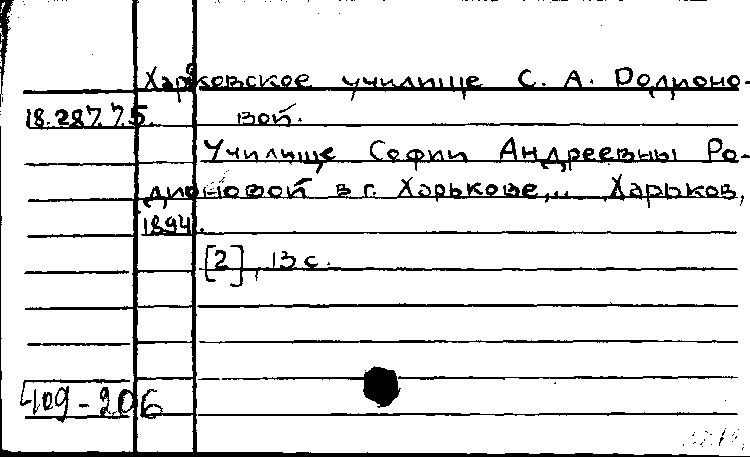 Харьковское училище С. А. Родионо-
18.287.7.5. вой.
Училище Софии Андреевны Ро-
дионовой в г. Харькове,.. Харьков,
1894.
[2], 13 с.
409-206